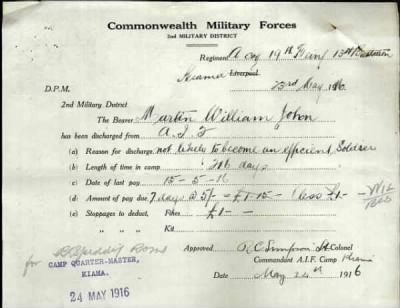 Commonwealth Military Forces
2nd MILITARY DISTRICT
Regiment A Coy 19th Reinf 13th Battalion
Kiama Liverpool
23rd May 1916.
D.P.M.
2nd Military District
The Bearer Martin William John
has been discharged from A.I.F
(a) Reason for discharge, not likely to become an efficient Soldier
(b) Length of time in camp days
(c) Date of last pay 15-5-16
(d) Amount of pay due 7 days @ 5/- = £1-15- less £1-
(e) Stoppages to deduct, Fines £1-
" " " Kit
Approved Simpson Lt Colonel
Commandant A.I.F. Camp Kiama
Date May 24th 1916
for
CAMP QUARTER-MASTER,
KIAMA.
24 MAY 1916